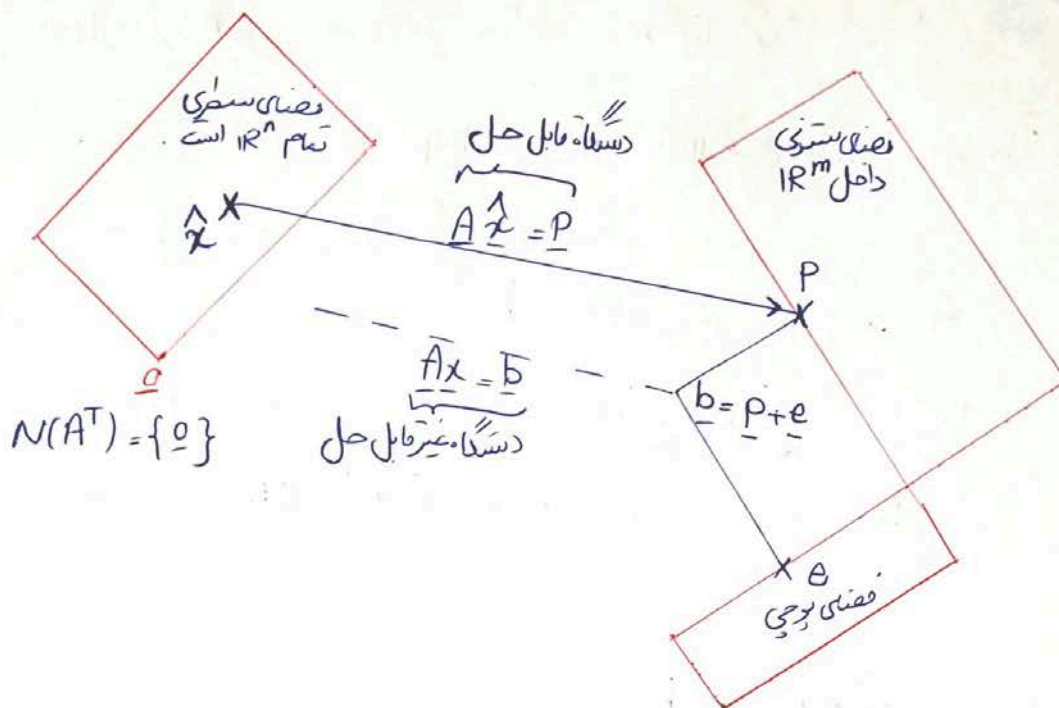 فضای سطری
تمام IRⁿ است.
x̂
دستگاه قابل حل
A x̂ = P
فضای ستونی
داخل IRᵐ
P
Ax = b
دستگاه غیرقابل حل
b = P + e
o
N(Aᵀ) = {o}
e
فضای پوچی